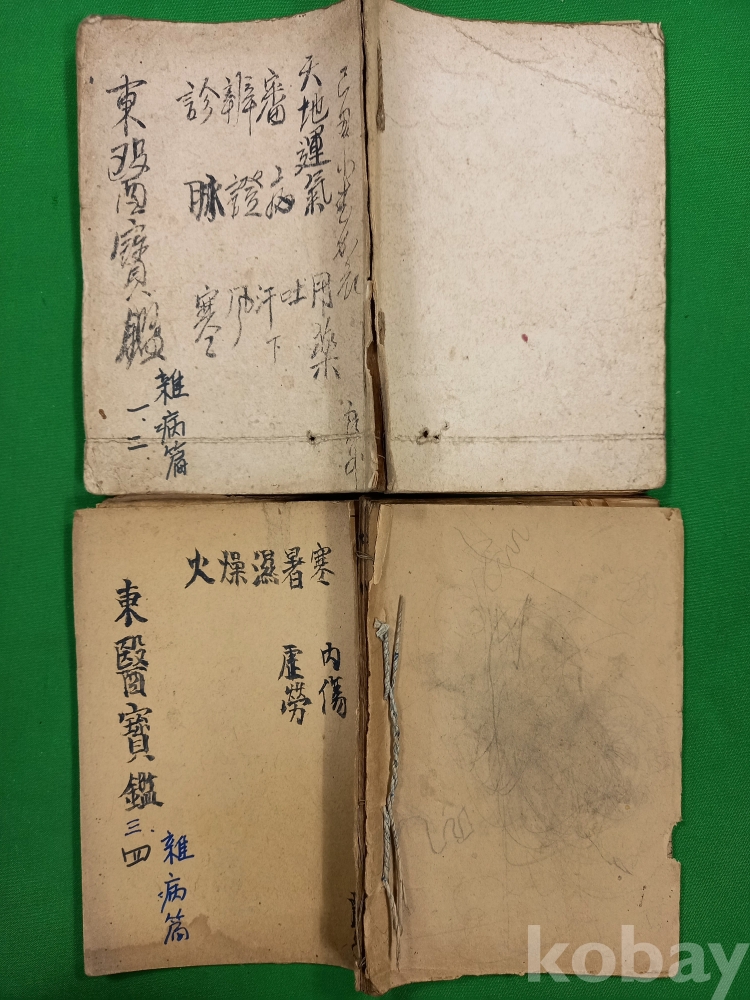 天地運氣
審病
辨證
診脉
用藥
吐
汗
下
風
寒
東醫寶鑑
雜病篇
一.二
寒暑濕燥火
內傷
虛勞
東醫寶鑑 三.四
雜病篇
kobay